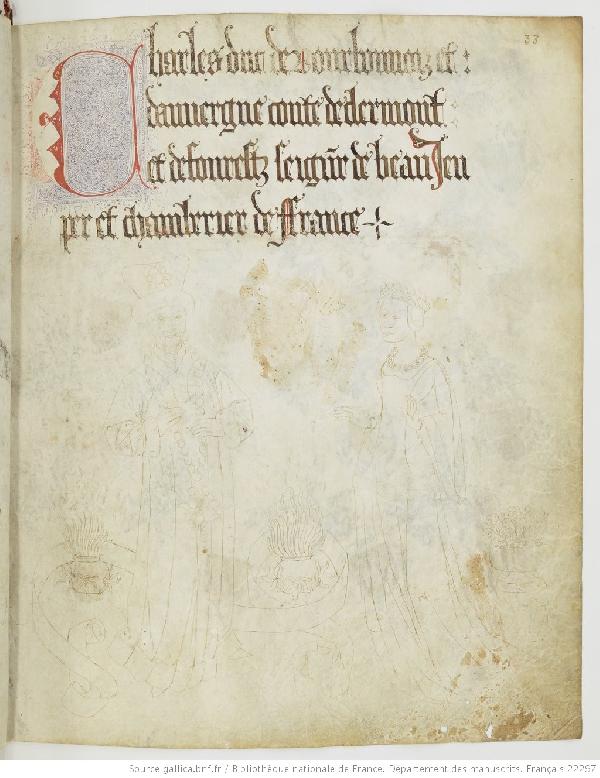 33
Charles duc de Bourbonnoiz et :
dauuergne conte de clermont :
et de fourestz seigñr de beauJeu
per et chamberier de ffrance
Source gallica.bnf.fr / Bibliothèque nationale de France. Département des manuscrits. Français 22297